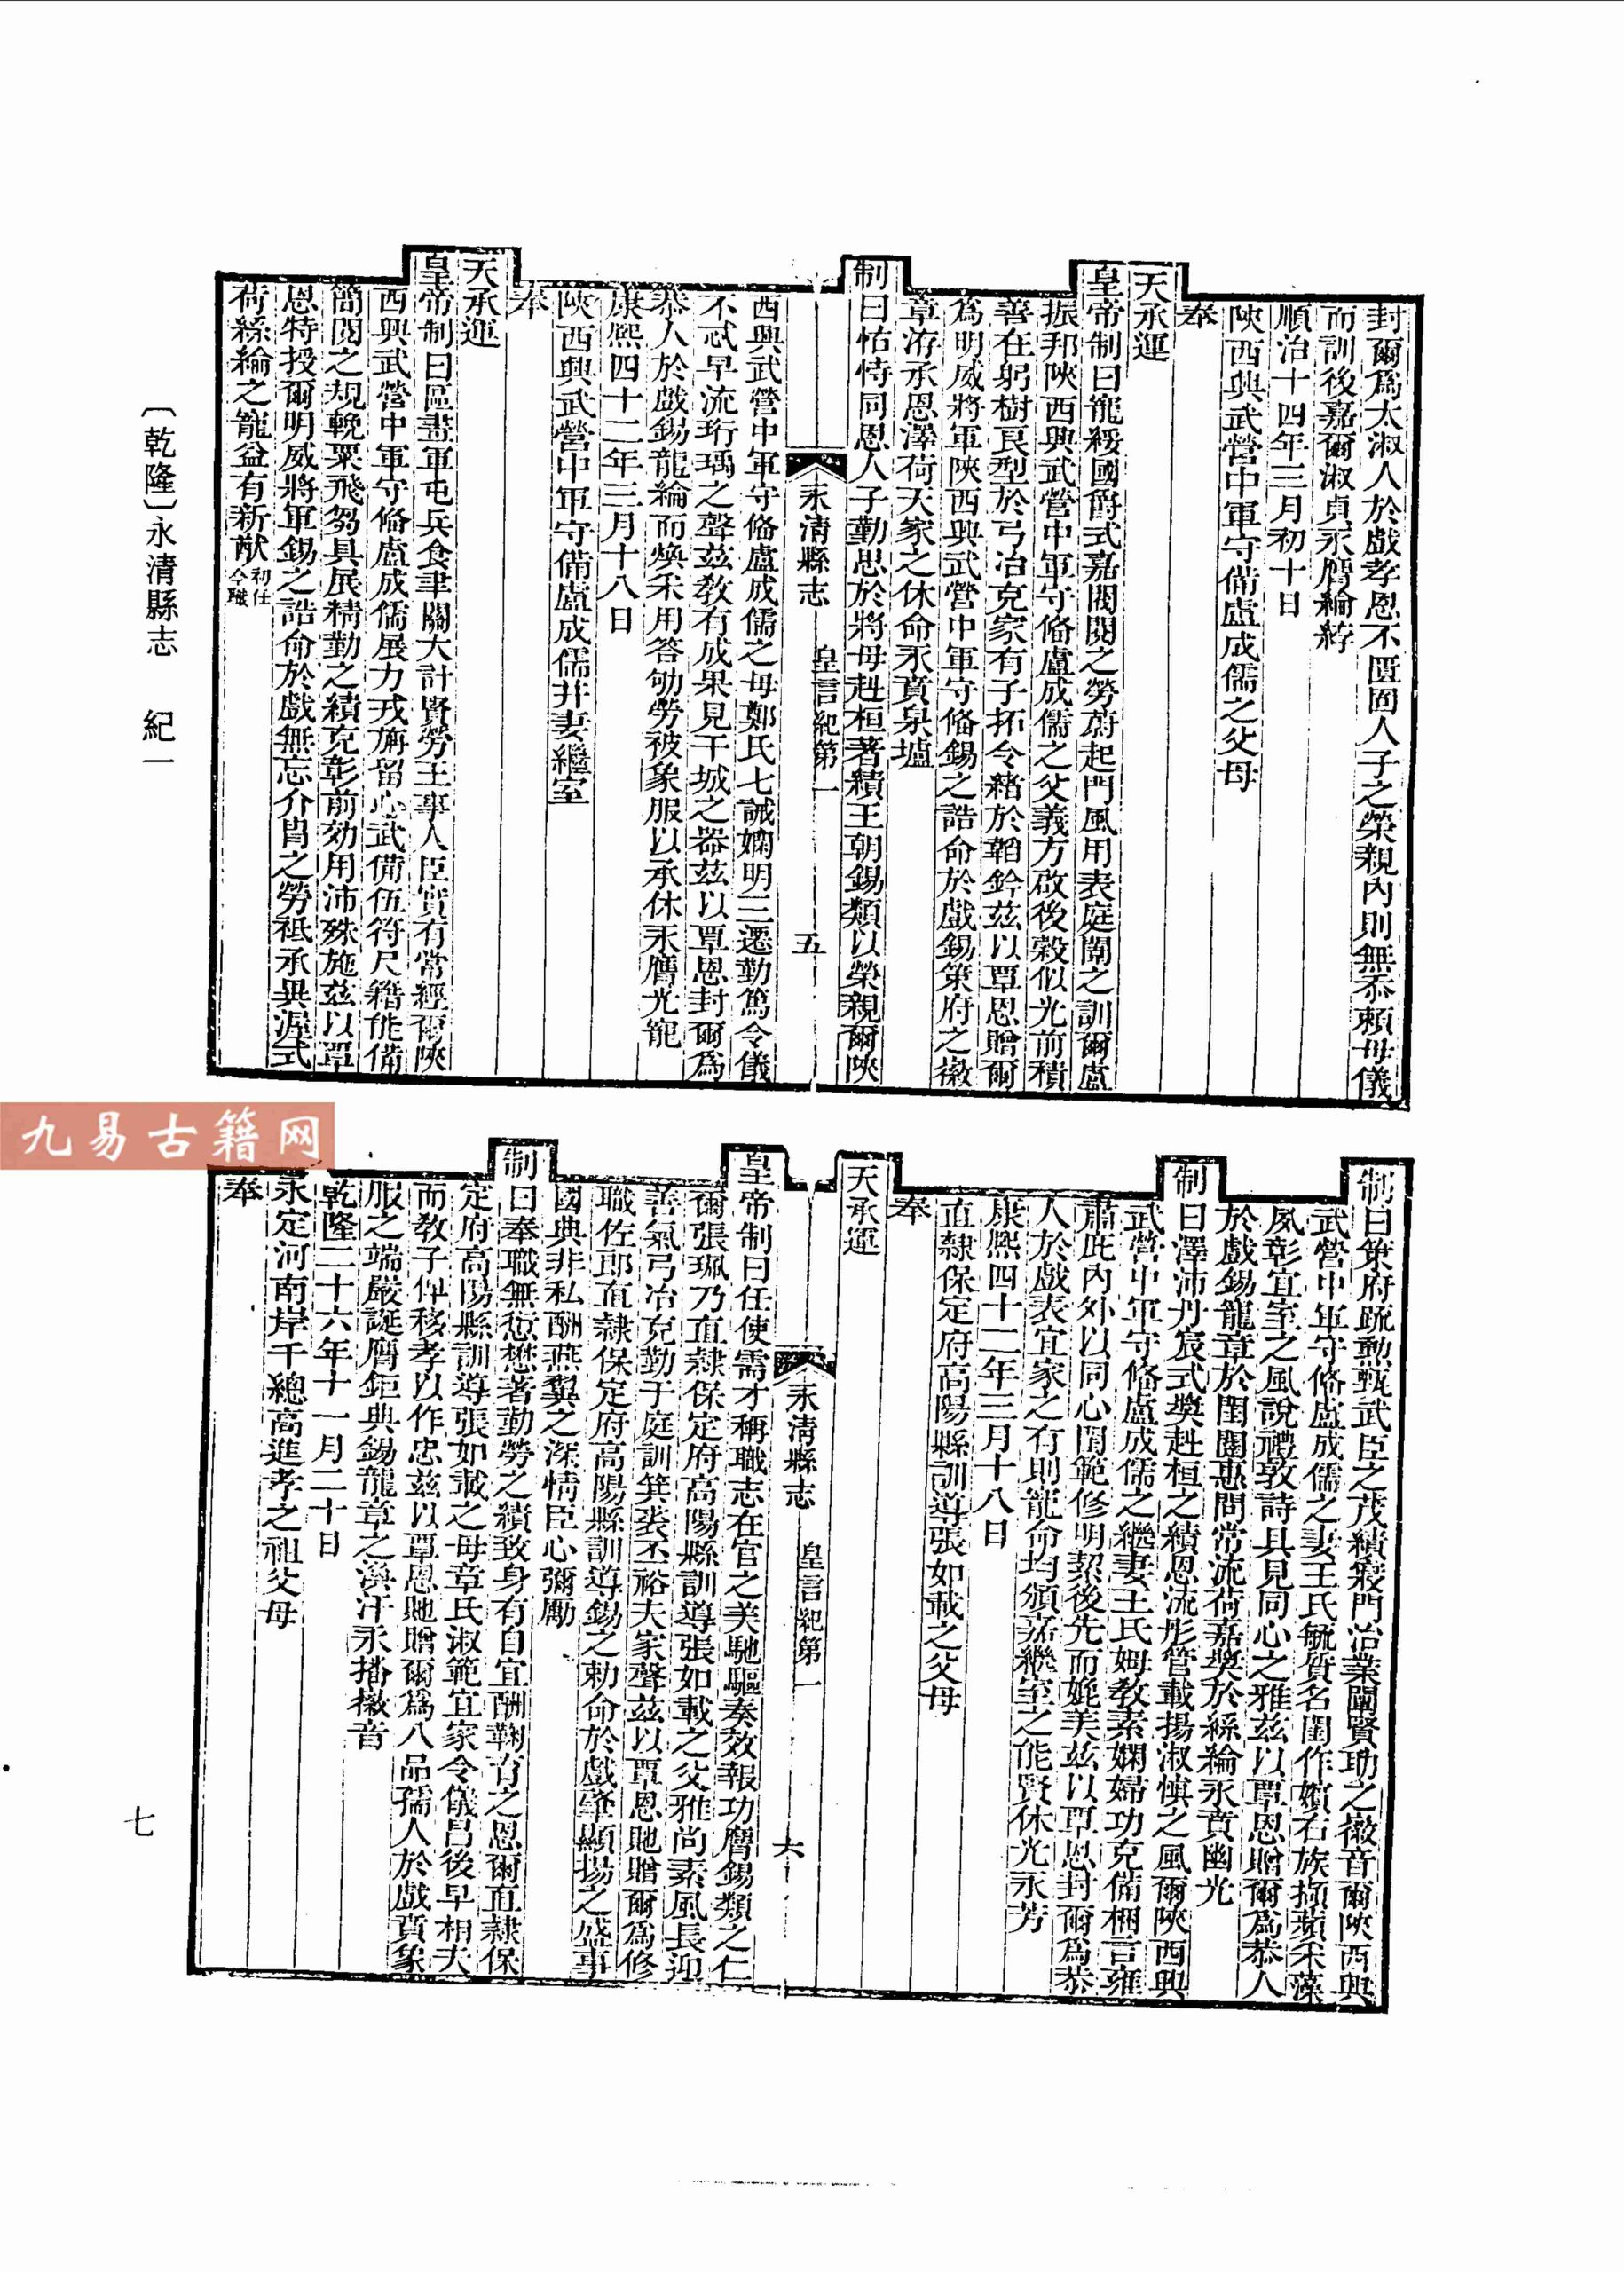 封爾爲太淑人於戲孝思不匱固人子之榮親內則無忝賴母儀
而訓後嘉爾淑貞永膺綸綍
順治十四年三月初十日
陝西興武營中軍守備盧成儒之父母
奉
天承運
皇帝制曰寵綏國爵式嘉閥閱之勞蔚起門風用表庭闈之訓爾盧
振邦陝西興武營中軍守備盧成儒之父義方啟後穀似光前積
善在躬樹良型於弓冶克家有子拓令緒於韜鈐茲以覃恩贈爾
爲明威將軍陝西興武營中軍守備錫之誥命於戲錫策府之徽
章洊承恩澤荷天家之休命永賁泉壚
制曰怙恃同恩人子勤思於將母赳桓著績王朝錫類以榮親爾陝
永清縣志 皇言紀第一 五
西興武營中軍守備盧成儒之母鄭氏七誡嫻明三遷勤篤令儀
不忒早流珩瑀之聲茲敎有成果見干城之器茲以覃恩封爾爲
恭人於戲錫龍綸而煥采用答劬勞被象服以承休永膺光寵
康熙四十二年三月十八日
陝西興武營中軍守備盧成儒幷妻繼室
奉
天承運
皇帝制曰區畫軍屯兵食聿關大計賢勞王事人臣實有常經爾陝
西興武營中軍守備盧成儒展力戎旃留心武備伍符尺籍能備
簡閱之規輓粟飛芻具展精勤之績克彰前効用沛殊施茲以覃
恩特授爾明威將軍錫之誥命於戲無忘介胄之勞祗承異渥式
荷絲綸之寵益有新猷初任今職
〔乾隆〕永清縣志 紀一
制曰策府疏勳甄武臣之茂績寢門冶業闡賢助之徽音爾陝西興
武營中軍守備盧成儒之妻王氏毓質名閨作嬪右族擷蘋采藻
夙彰宜室之風說禮敦詩具見同心之雅茲以覃恩贈爾爲恭人
於戲錫龍章於閨闥惠問常流荷嘉奬於絲綸永賁幽光
制曰澤沛丹宸式奬赳桓之績恩流彤管載揚淑愼之風爾陝西興
武營中軍守備盧成儒之繼妻王氏姆敎素嫻婦功克備梱言雍
肅庇內外以同心閨範修明絜後先而媲美茲以覃恩封爾爲恭
人於戲表宜家之有則寵命均頒嘉繼室之能賢休光永芳
康熙四十二年三月十八日
直隸保定府高陽縣訓導張如載之父母
奉
天承運
永清縣志 皇言紀第一 六
皇帝制曰任使需才稱職志在官之美馳驅奏效報功膺錫類之仁
爾張珮乃直隸保定府高陽縣訓導張如載之父雅尚素風長迎
善氣弓冶克勤于庭訓箕裘丕裕夫家聲茲以覃恩貤贈爾爲修
職佐郎直隸保定府高陽縣訓導錫之勅命於戲肇顯揚之盛事
國典非私酬燕翼之深情臣心彌勵
制曰奉職無愆懋著勤勞之績致身有自宜酬鞠育之恩爾直隸保
定府高陽縣訓導張如載之母章氏淑範宜家令儀昌後早相夫
而敎子俾移孝以作忠茲以覃恩貤贈爾爲八品孺人於戲賁象
服之端嚴誕膺鉅典錫龍章之渙汗永播徽音
乾隆二十六年十一月二十日
永定河南岸千總高進孝之祖父母
奉
七
九易古籍网